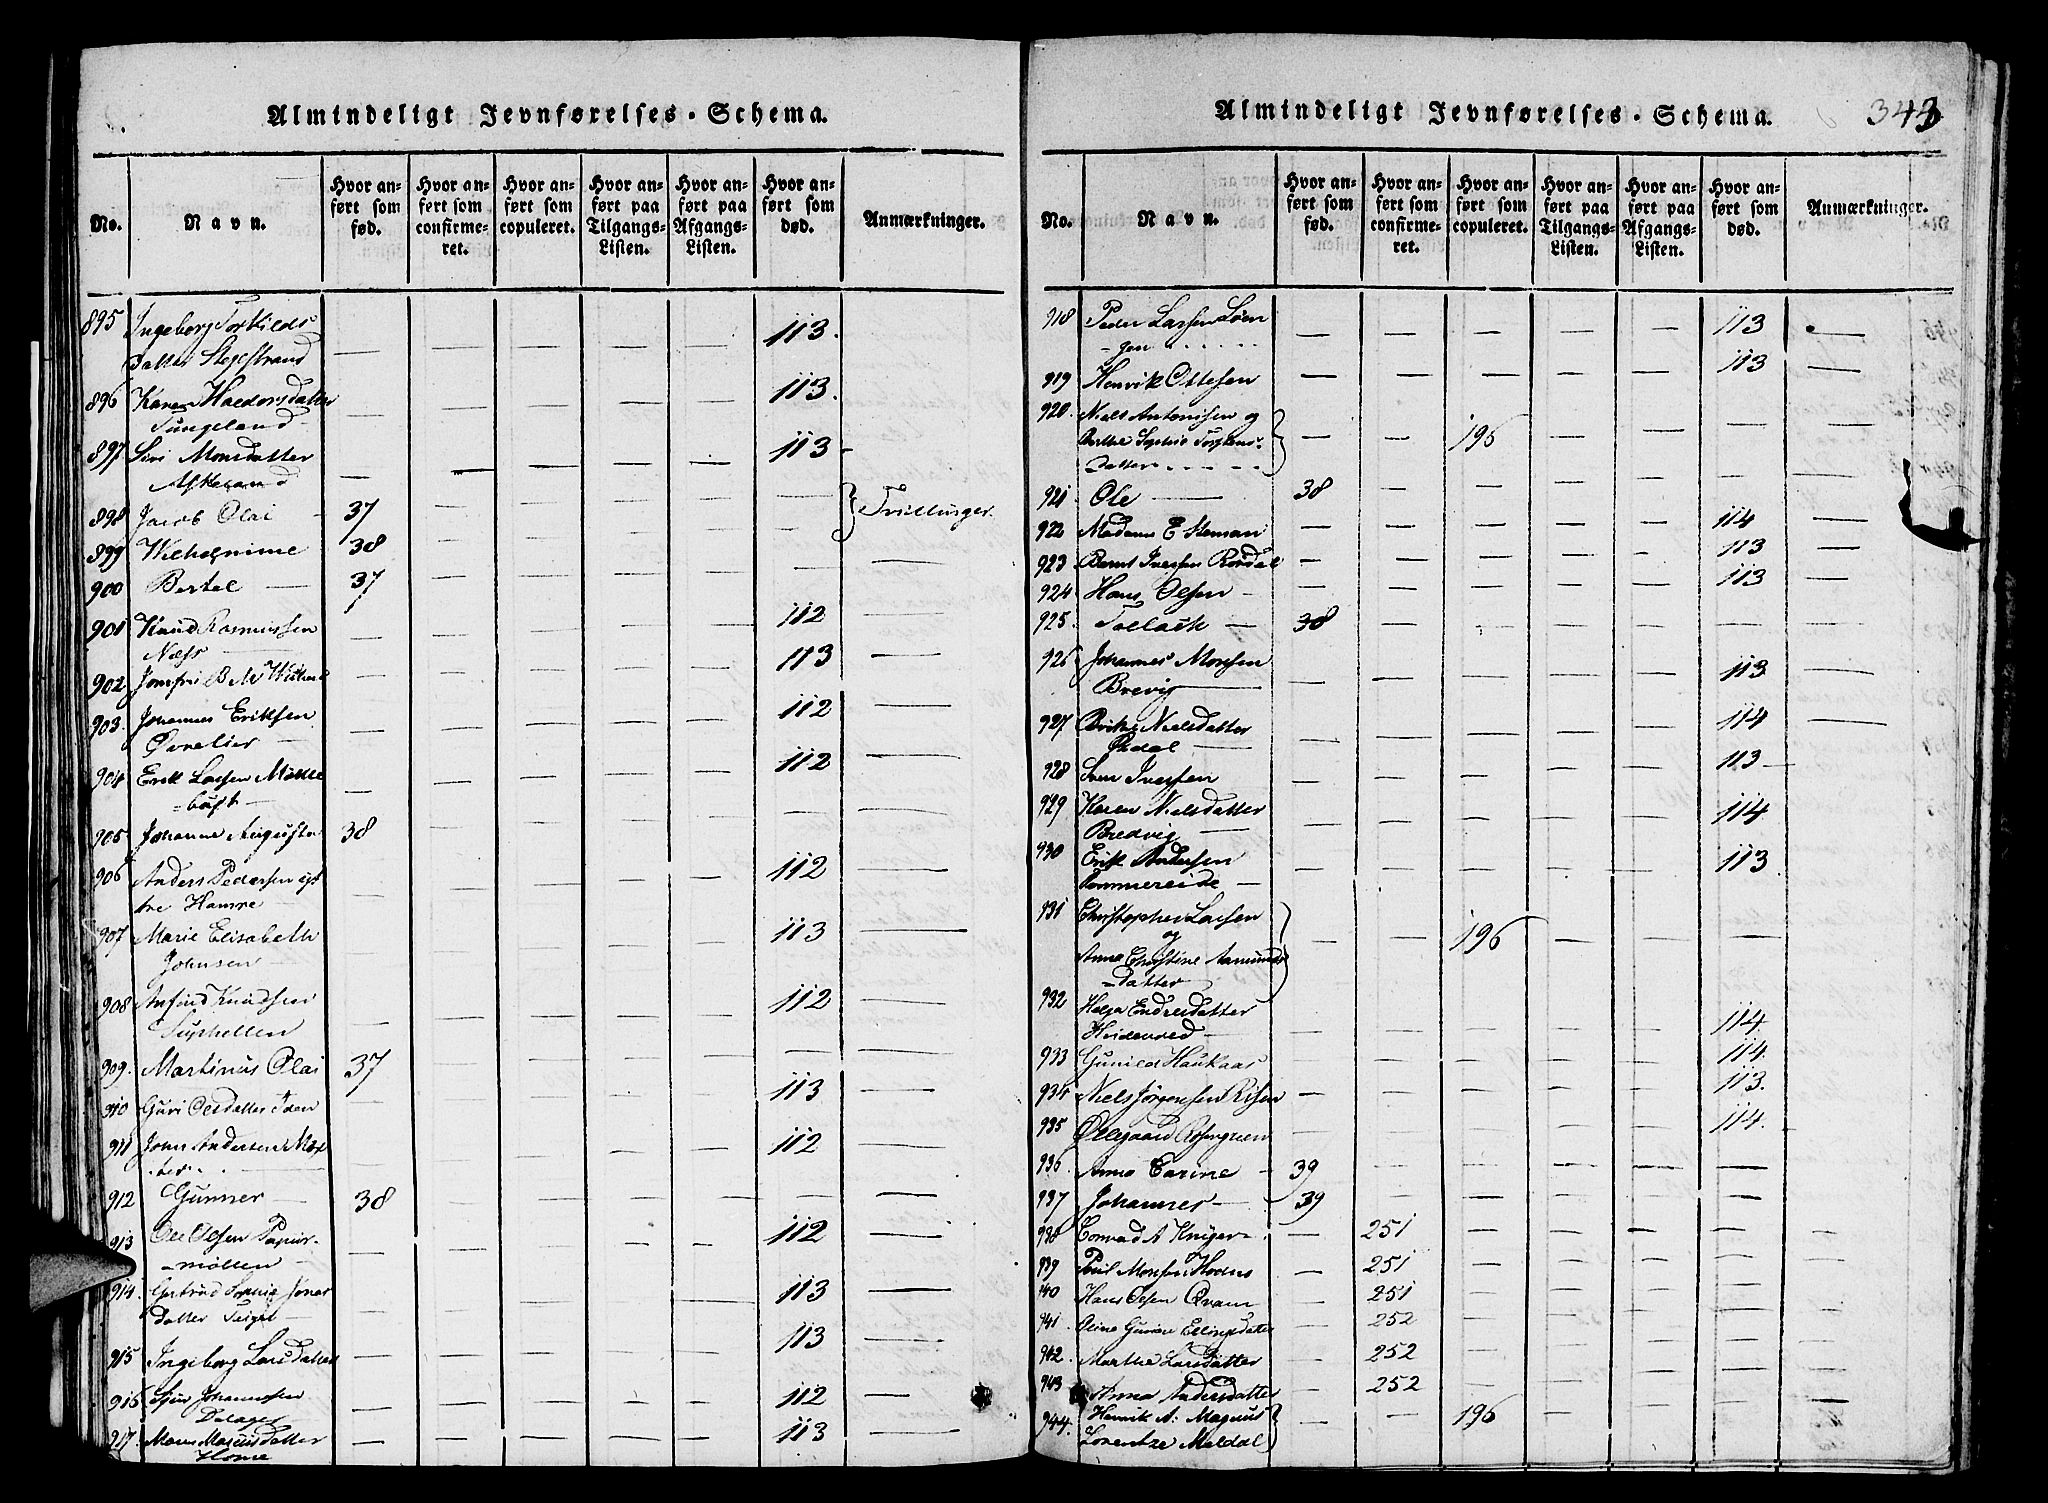 Almindeligt Jevnførelses-Schema.
No.
Navn.
Hvor anført som fød.
Hvor anført som confirmeret.
Hvor anført som copuleret.
Hvor anført paa Tilgangs-Listen.
Hvor anført paa Afgangs-Listen.
Hvor anført som død.
Anmærkninger.
895 Ingeborg Torkilds 113.
Datter Stegestrand
896 Karen Haldorsdatter 113.
Tungeland
897 Siri Monsdatter 113
Askeland
898 Jacob Olai 37 Tvillinger.
899 Wilhelmine 38
900 Bertel 37
901 Knud Rasmussen 112
Næss
902 Jomfru B M 113
903. Johannes Eriksen 112
Øvrelier
904 Erik Larsen Mølle 112
=bust
905 Johanne Auguste 38
906 Anders Pedersen 112
tre Hamre
907 Marie Elisabeth 113
Johnsen
908 Anfind Knudsen 112
Suphellen
909. Martinus Olai 37
910 Guri Olsdatter 113
911 John Andersen 112
912 Gunner 38
913 Ole Olsen Papiir- 112
=møllen
914. Gertrud Sophie Jonas 113
datter Teiget
915 Ingeborg Larsdatter 113
916 Johannessen 112
Dalager
917. datter 113
Almindeligt Jevnførelses-Schema.
343
No.
Navn.
Hvor anført som fød.
Hvor anført som confirmeret.
Hvor anført som copuleret.
Hvor anført paa Tilgangs-Listen.
Hvor anført paa Afgangs-Listen.
Hvor anført som død.
Anmærkninger.
918 Peder Larsen Løen 113
=gen
919 Henrik Ottesen 113
920. Niels Antonisen og
Berthe Sophie 196
Datter
921. Ole 38
922 Madame E Steman 114
923 Bernt Iversen 113
924 Hans Olsen 113
925. Tollack 38
926 Johannes Monsen
Brevig 113
927 Nielsdatter 114
928 Sven Iversen 113
929 Karen Nielsdatter 114
Bredvig
930 Erik Andersen 113
Tommereide
931 Christopher Larsen
og 196
Anna Christine Aamunds
=Datter
932 Helga Endresdatter
114.
933 Gunild Haukaas 114
934 Niels Jørgensen Risen 113.
935 Ølegaard Rosengreen 114.
936. Anna Carine 39
937 Johannes 39
938 Conrad A Krüger 251
939 Poul Monsen 251
940 Hans Olsen Qvam 251
941. Oline Gurine Ellingsdatter 252
942. Marthe Larsdatter 252
943 Anna Andersdatter 252
944. Henrik A: Magnus 196
Lorentze Meldal